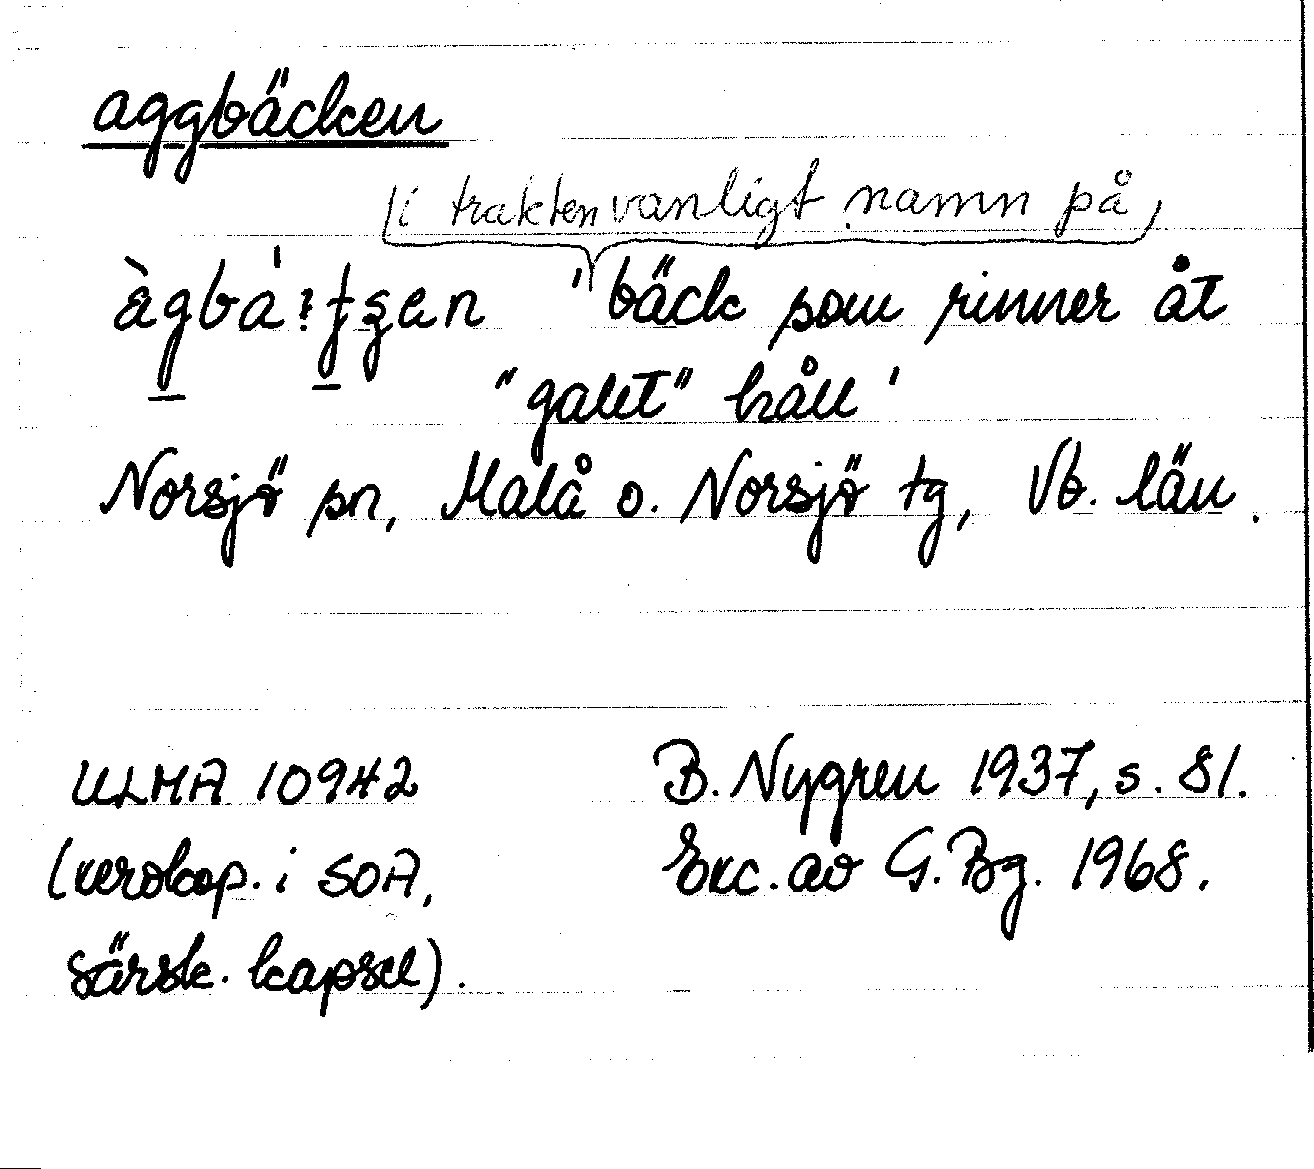 aggbäcken
(i trakten vanligt namn på)
'bäck som rinner åt
"galet" håll'
Norsjö sn, Malå o. Norsjö tg, Vb. län.
ULMA 10942
B. Nygren 1937, s. 81.
(xerokop. i SOA,
Exc. av G. Bg. 1968.
särsk. kapsel).